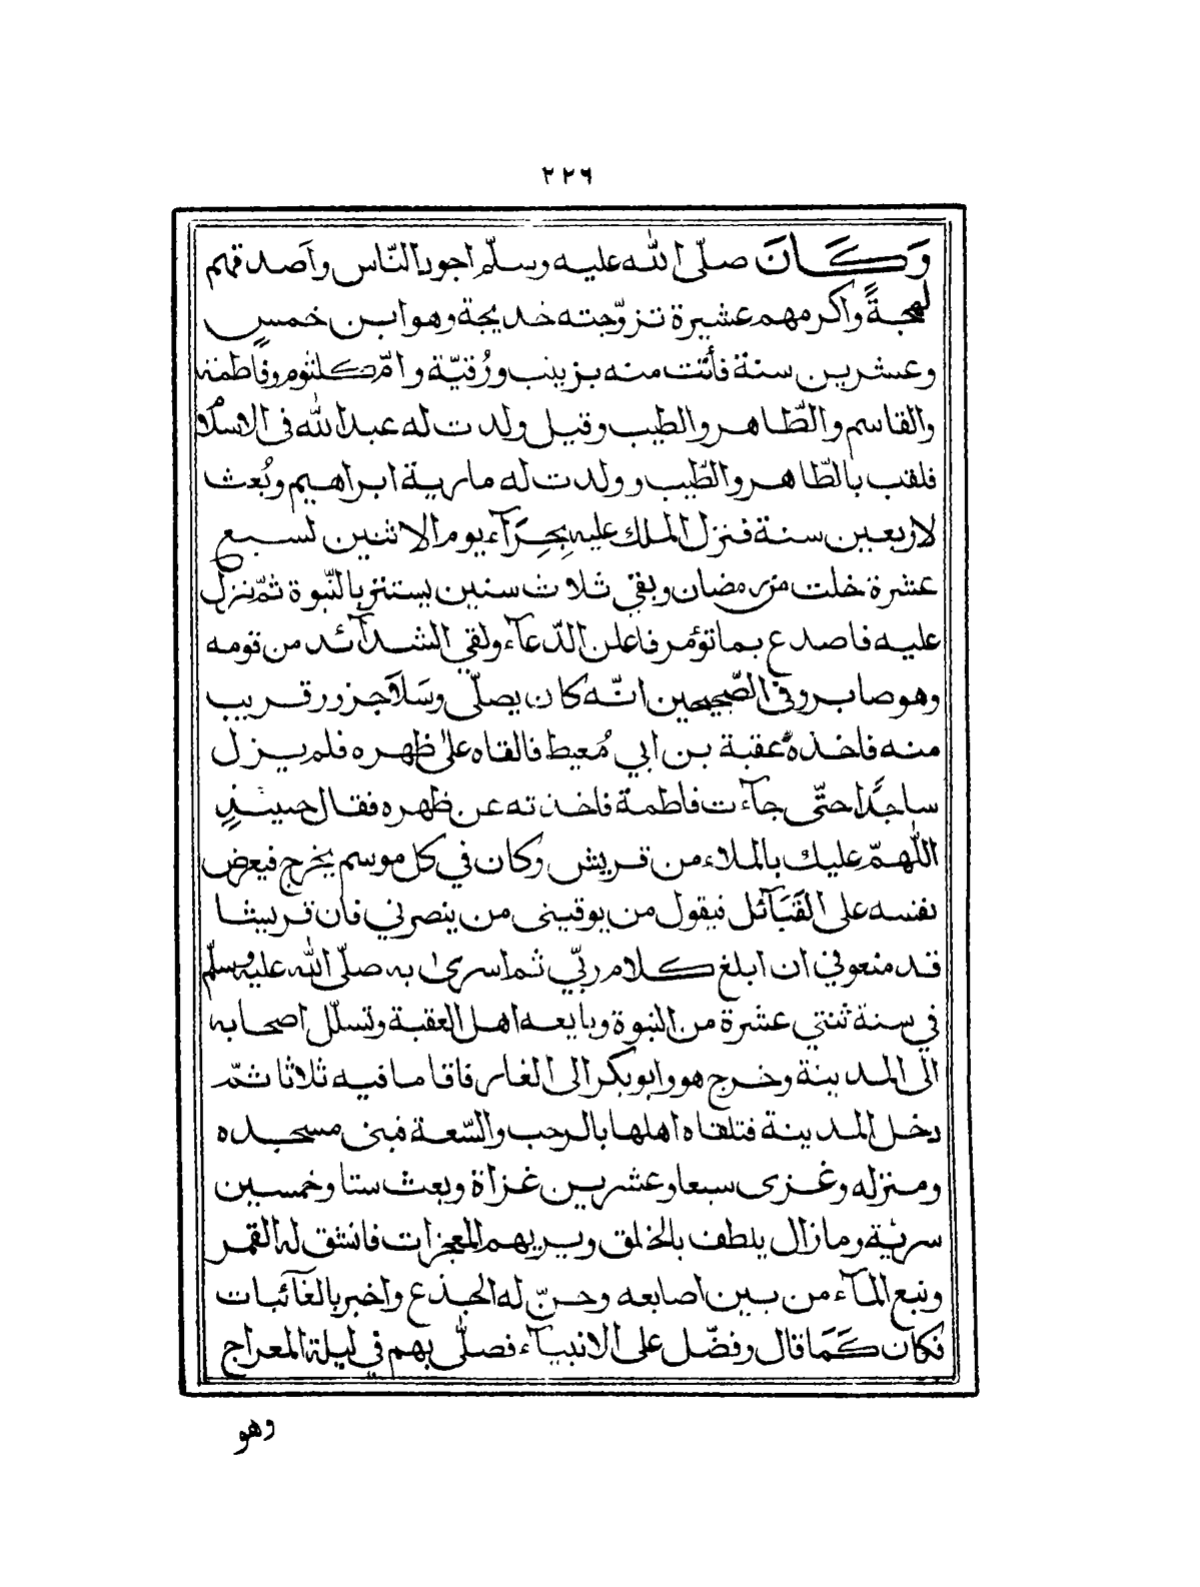 ٢٢٦
وَكَانَ صلّى الله عليه وسلّم اجود النّاس واَصدقهم
لهجةً واكرمهم عشيرة تزوّجته خديجة وهو ابن خمسٍ
وعشرين سنة فأتت منه بزينب ورُقيّة وامّ كلثوم وفاطمة
والقاسم والطّاهر والطيب وقيل ولدت له عبدالله فى الاسلام
فلقب بالطّاهر والطّيب وولدت له مارية ابراهيم وبُعث
لاربعين سنة فنزل الملك عليه بِحِرَآء يوم الاثنين لسبع
عشرة خلت من رمضان وبقي ثلاث سنين يستتر بالنّبوة ثمّ نزل
عليه فاصدع بما تؤمر فاعلن الدّعآء ولقي الشدآئد من قومه
وهو صابر وفى الصّحيحين انّه كان يصلّى وسَلاَ جزور قريب
منه فاخذه عقبة بن ابي مُعيط فالقاه على ظهره فلم يزل
ساجدًا حتّى جآءت فاطمة فاخذته عن ظهره فقال حينئذٍ
اللّهمّ عليك بالملاء من قريش وكان في كل موسم يخرج فيعرض
نفسه على القَبَآئل فيقول من يوقينى من ينصرني فان قريشا
قد منعوني ان ابلغ كلام ربّي ثم اسرى به صلّى الله عليه وسلّم
في سنة ثنتي عشرة من النبوة وبايعه اهل العقبة وتسلّل اصحابه
الى المدينة وخرج هو وابو بكر الى الغار فاقاما فيه ثلاثا ثمّ
دخل المدينة فتلقاه اهلها بالرحب والسّعة فبنى مسجده
ومنزله وغزى سبعا وعشرين غزاة وبعث ستا وخمسين
سريّة وما زال يلطف بالخلق ويريهم المعجزات فانشق له القمر
ونبع المآء من بين اصابعه وحنّ له الجذع واخبر بالغآئبات
فكان كَمَا قال وفضّل على الانبيآء فصلّى بهم في ليلة المعراج
وهو